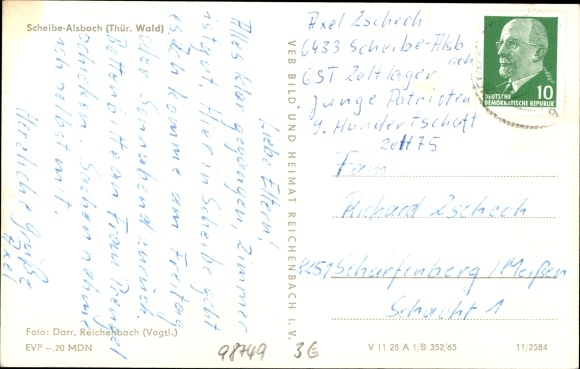 Scheibe-Alsbach (Thür. Wald)
Liebe Eltern!
Alles klar gegangen, Zimmer
ist gut. Hier in Scheibe gibt
es. Ich komme am Freitag
oder Sonnabend zurück.
Bettend Frau
schicken. Sachen nehme
ich selbst mit.
Herzliche Grüße
Axel
Foto: Darr, Reichenbach (Vogtl.)
EVP –,20 MDN
VEB BILD UND HEIMAT REICHENBACH i. V.
Axel Zschech
6433 Scheibe-Alsb
ach
GST Zeltlager
Junge Patrioten
9. Hundertschaft
Zelt 75
10
DEUTSCHE
DEMOKRATISCHE REPUBLIK
Fam
Richard Zschech
8251 Scharfenberg/Meißen
Schacht 1
98749 3E
V 11 28 A 1/B 352/65
11/2584